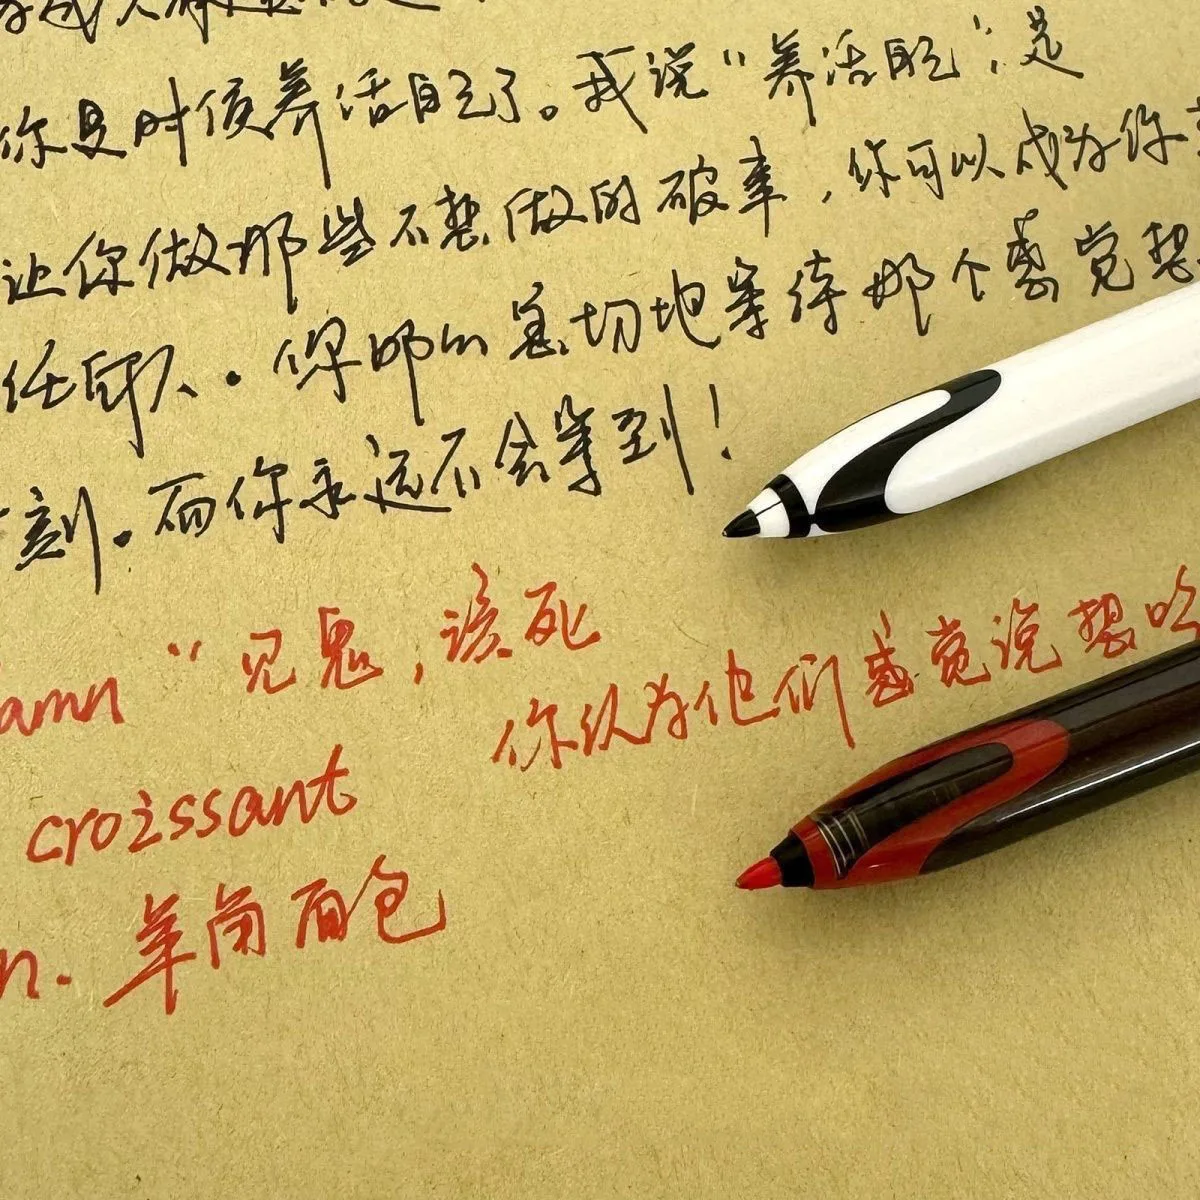 你是时候养活自己了。我说“养活自己”,是
让你做那些不想做的破事,你可以成为你
任何人.你 急切地等待那个感觉想
刻。而你永远不会等到!
amn “见鬼,该死
你认为他们感觉说想吃
croissant
n. 羊角面包